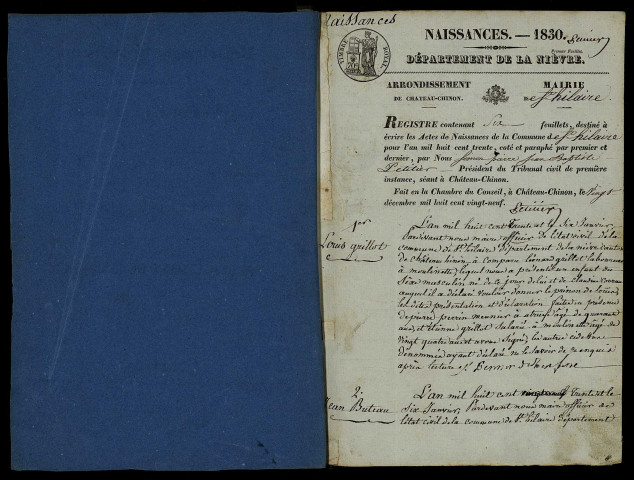 Naissances
NAISSANCES. — 1830.
Premier Feuillet.
TIMBRE ROYAL
DÉPARTEMENT DE LA NIÈVRE.
ARRONDISSEMENT
DE CHATEAU-CHINON.
MAIRIE
DE St hilaire.
REGISTRE contenant Six feuillets, destiné à
écrire les Actes de Naissances de la Commune de St hilaire
pour l'an mil huit cent trente, coté et paraphé par premier et
dernier, par Nous Jean Baptiste
Petitier Président du Tribunal civil de première
instance, séant à Château-Chinon.
Fait en la Chambre du Conseil, à Château-Chinon, le Vingt
décembre mil huit cent vingt-neuf.
1er
Louis grillot
L'an mil huit cent Trente et le Six Janvier
Pardevant nous maire officier de l'état civil de la
commune de St hilaire département de la nièvre canton
de Château chinon, a comparu Léonard grillot laboureur
à lequel nous a présenté un enfant du
Sexe masculin né de ce jour de lui et de claudine
auquel il a déclaré vouloir donner le prénom de Louis
les dites présentation et déclaration faites en présence
de pierre meunier à âgé de quarante
ans, et Etienne grillot âgé de
Vingt quatre ans et avons Signé, les autres ci dessus
dénommés ayant déclaré ne le Savoir de ce enquis
après lecture
2e
Jean Buteau
L'an mil huit cent Trente et le
Six Janvier, Pardevant nous maire officier de
l'état civil de la commune de St hilaire Département